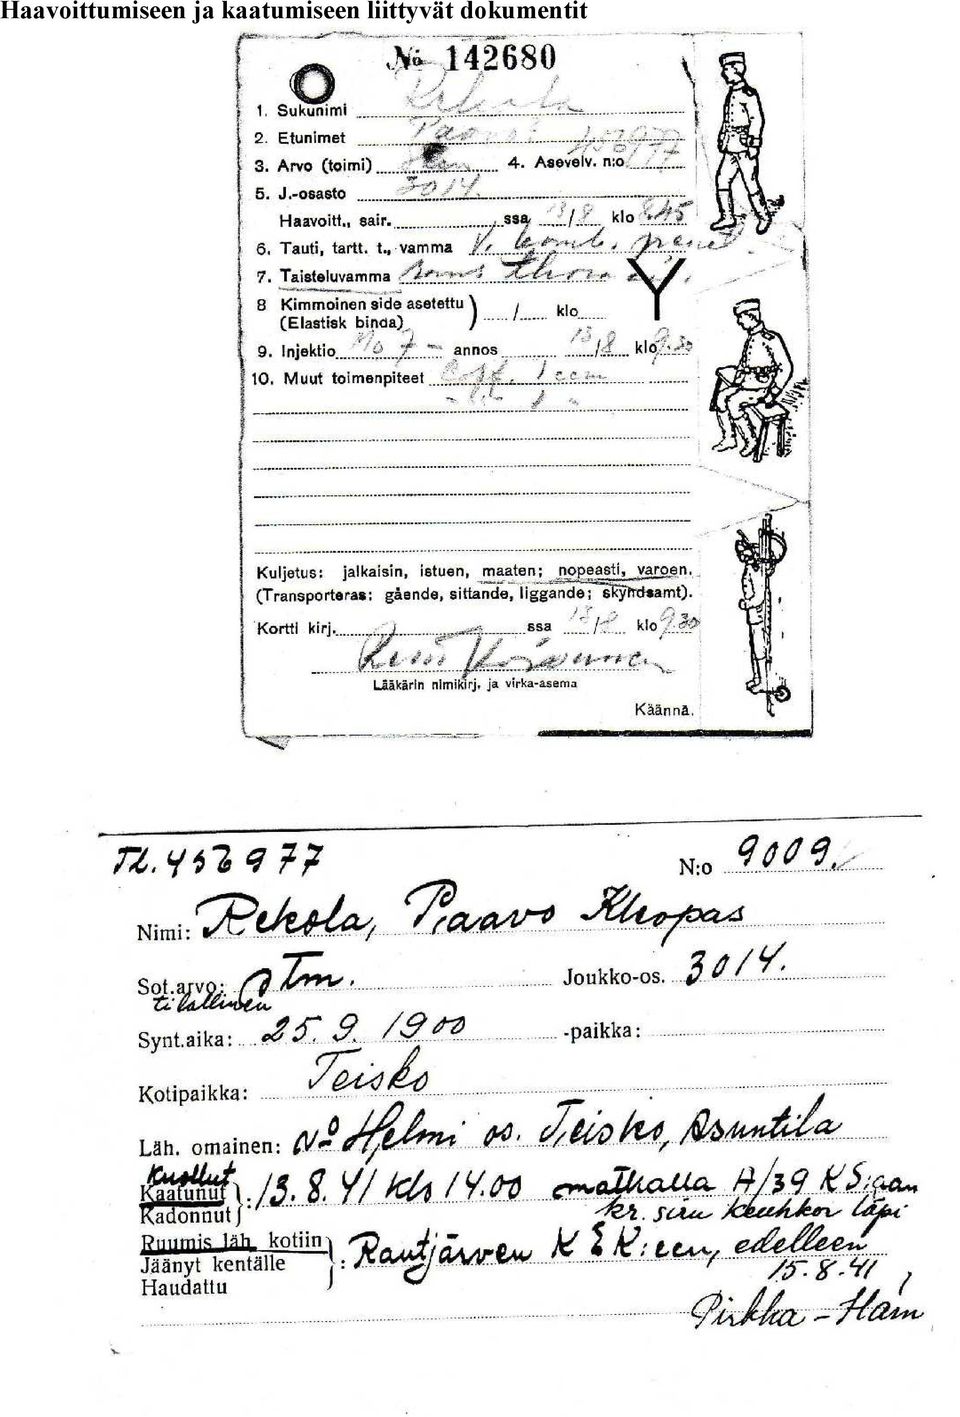 Haavoittumiseen ja kaatumiseen liittyvät dokumentit
No 142680
1. Sukunimi Rekola
2. Etunimet Paavo
3. Arvo (toimi) 4. Asevelv. n:o 452977
5. J.-osasto 30/4.
Haavoitt., sair. ssa 13/8 klo 8.45
6. Tauti, tartt. t., vamma V.
7. Taisteluvamma
8 Kimmoinen side asetettu ) / klo
(Elastisk binda)
9. Injektio Mo annos 13/8 klo 9.30
10. Muut toimenpiteet Coff. 1 ccm
Kuljetus: jalkaisin, istuen, maaten; nopeasti, varoen.
(Transporteras: gående, sittande, liggande; skyndsamt).
Kortti kirj. ssa 13/8 klo 9.30
Lääkärin nimikirj. ja virka-asema
Käännä.
Tl. 452977 N:o 9009.
Nimi: Rekola, Paavo Kleopas
Sot.arvo: Tm. Joukko-os. 30/4.
tilallinen
Synt.aika: 25. 9. 1900 -paikka:
Kotipaikka: Teisko
Läh. omainen: Helmi os. Teisko, Asuntila
Kuollut
Kaatunut } : 13. 8. 41 klo 14.00 matkalla H/39 KS:aan
Kadonnut kr. siru keuhkon läpi
Ruumis läh. kotiin
Jäänyt kentälle } : Rautjärven KEK:een, edelleen
Haudattu 15. 8. 41,
Pirkka-Häm